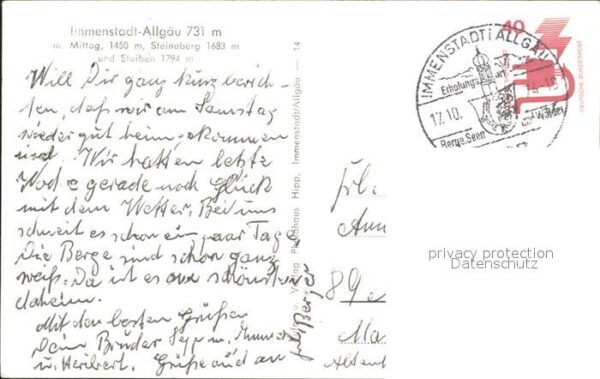 Immenstadt-Allgäu 731 m
m. Mittag, 1450 m, Steineberg 1683 m
und Stuiben 1794 m
Will Dir ganz kurz berich-
ten, daß wir am Samstag
wieder gut heimgekommen
sind. Wir hatten letzte
Woche gerade noch Glück
mit dem Wetter. Bei uns
schneit es schon ein paar Tage
Die Berge sind schon ganz
weiß. Da ist es am schönsten
daheim.
Mit den besten Grüßen
Dein Bruder Sepp m.
u. Heribert. Grüße auch an
Frl. Berger
Verlag Photohaus Hipp, Immenstadt/Allgäu — 14
IMMENSTADT I ALLGÄU
Erholung
17.10.
Berge, Seen
Wälder
40
DEUTSCHE BUNDESPOST
Frl.
Ann
89
Ma
Alten
privacy protection
Datenschutz